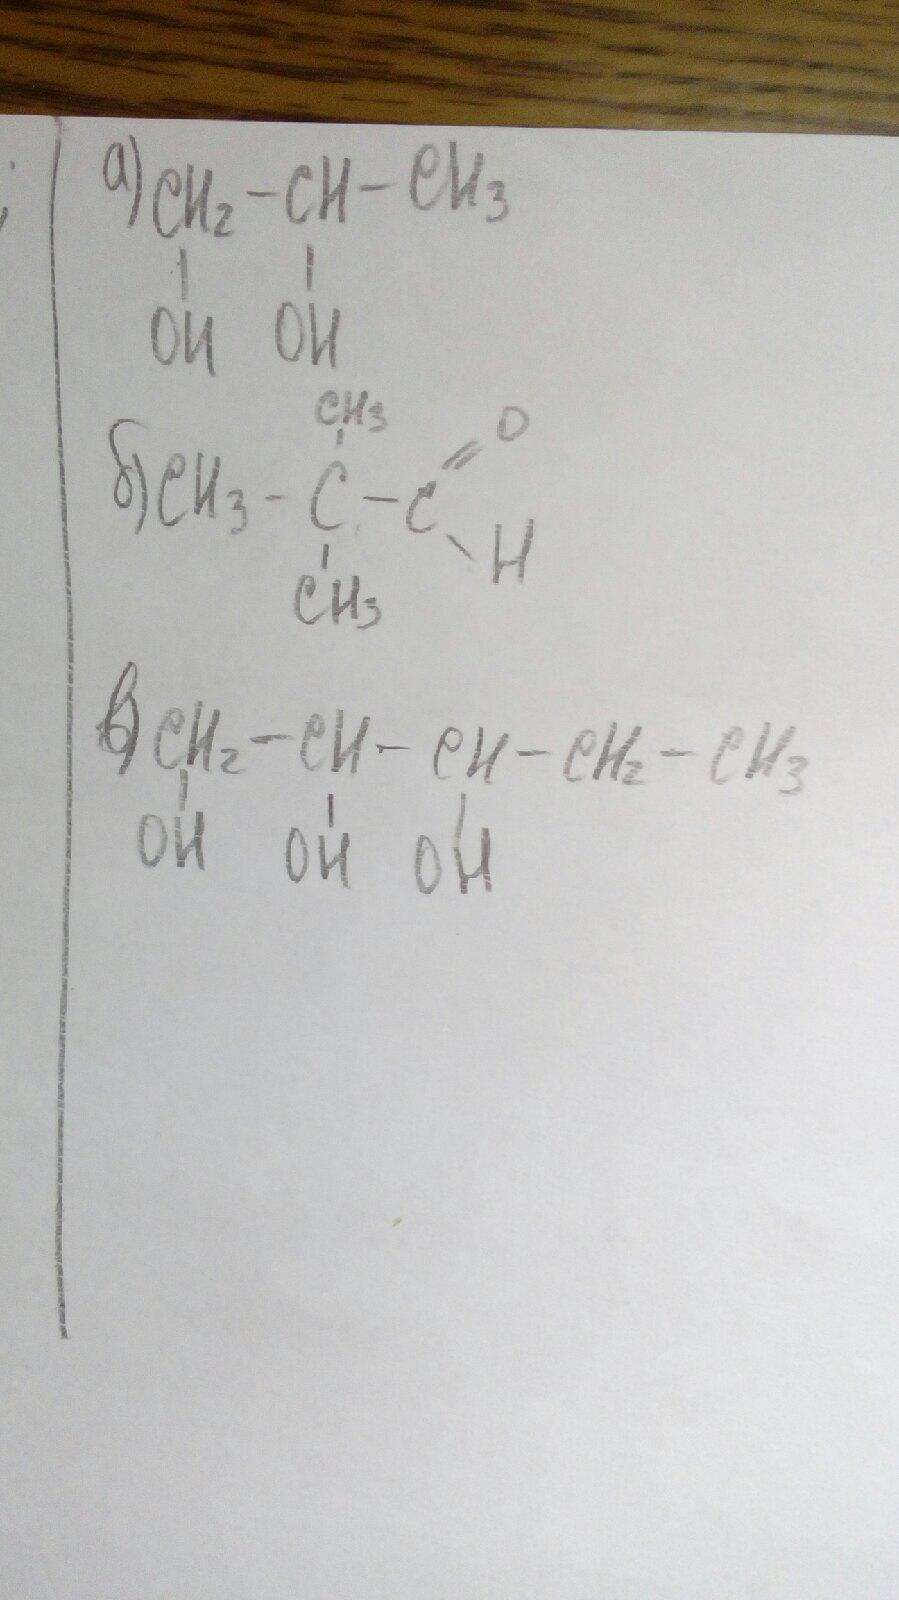 а) CH2 - CH - CH3
OH OH
CH3
O
б) CH3 - C - C
H
CH3
в) CH2 - CH - CH - CH2 - CH3
OH OH OH